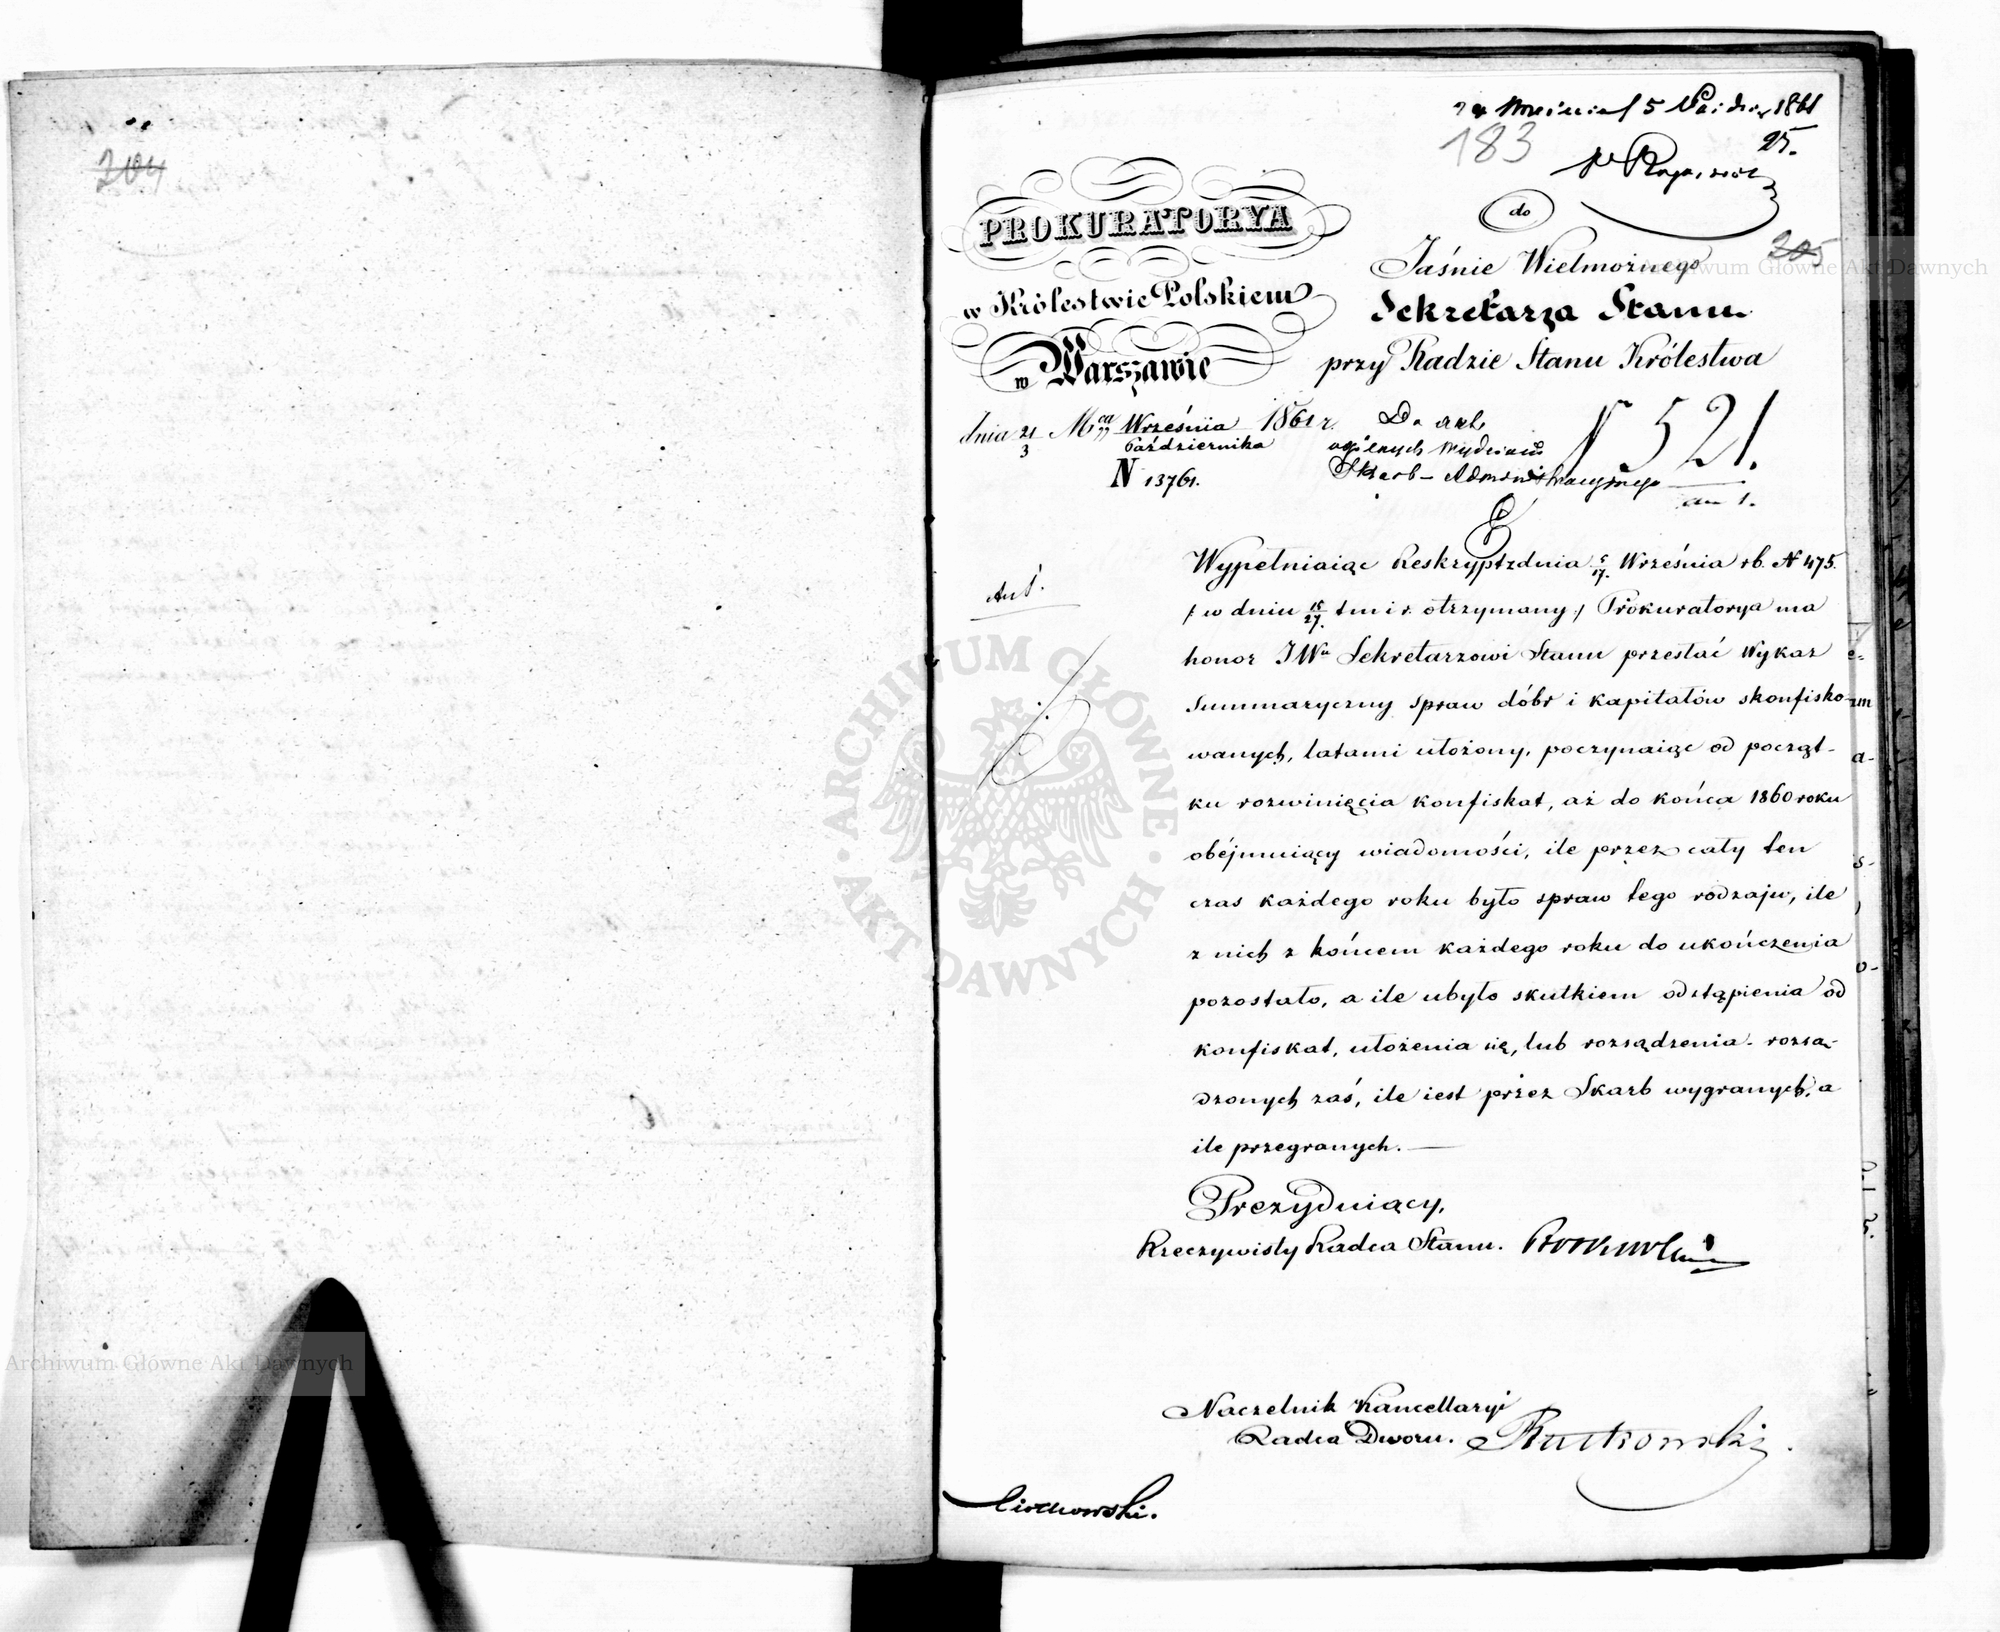 204
5 Paździer. 1861
183
25.
do
205
PROKURATORYA
w Królestwie Polskiem
w Warszawie
Jaśnie Wielmożnego
Sekretarza Stanu
przy Radzie Stanu Królestwa
dnia 21/3 Mca Września/Października 1861 r.
N 13761.
Do akt
ogólnych Wydziału
Skarb-Administracyjnego
N 521.
an 1.
Ant.
Wypełniaiąc Reskrypt z dnia 5/17. Września rb. N 475.
/: w dniu 15/27. t m i r. otrzymany :/ Prokuratorya ma
honor JWu Sekretarzowi Stanu przesłać Wykaz
Summaryczny spraw dóbr i kapitałów skonfisko-
wanych, latami ułożony, poczynaiąc od począt-
ku rozwinięcia konfiskat, aż do końca 1860 roku
obéjmuiący wiadomości, ile przez cały ten
czas każdego roku było spraw tego rodzaju, ile
z nich z końcem każdego roku do ukończenia
pozostało, a ile ubyło skutkiem odstąpienia od
konfiskat, ułożenia się, lub rozsądzenia. rozsą-
dzonych zaś, ile iest przez Skarb wygranych, a
ile przegranych.
Prezyduiący,
Rzeczywisty Radca Stanu.
Naczelnik Kancellaryi
Radca Dworu. Rutkowski.
Ciochowski.
ARCHIWUM GŁÓWNE AKT DAWNYCH
Archiwum Główne Akt Dawnych
Archiwum Główne Akt Dawnych